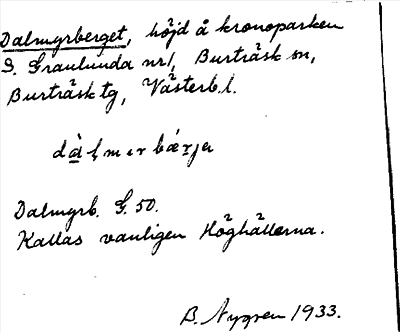 Dalmyrberget, höjd å kronoparken
S. Granlunda nr 1, Burträsk sn,
Burträsk tg, Västerb. l.
Dalmyrb. G. 50.
Kallas vanligen Höghällorna.
B. Nygren 1933.